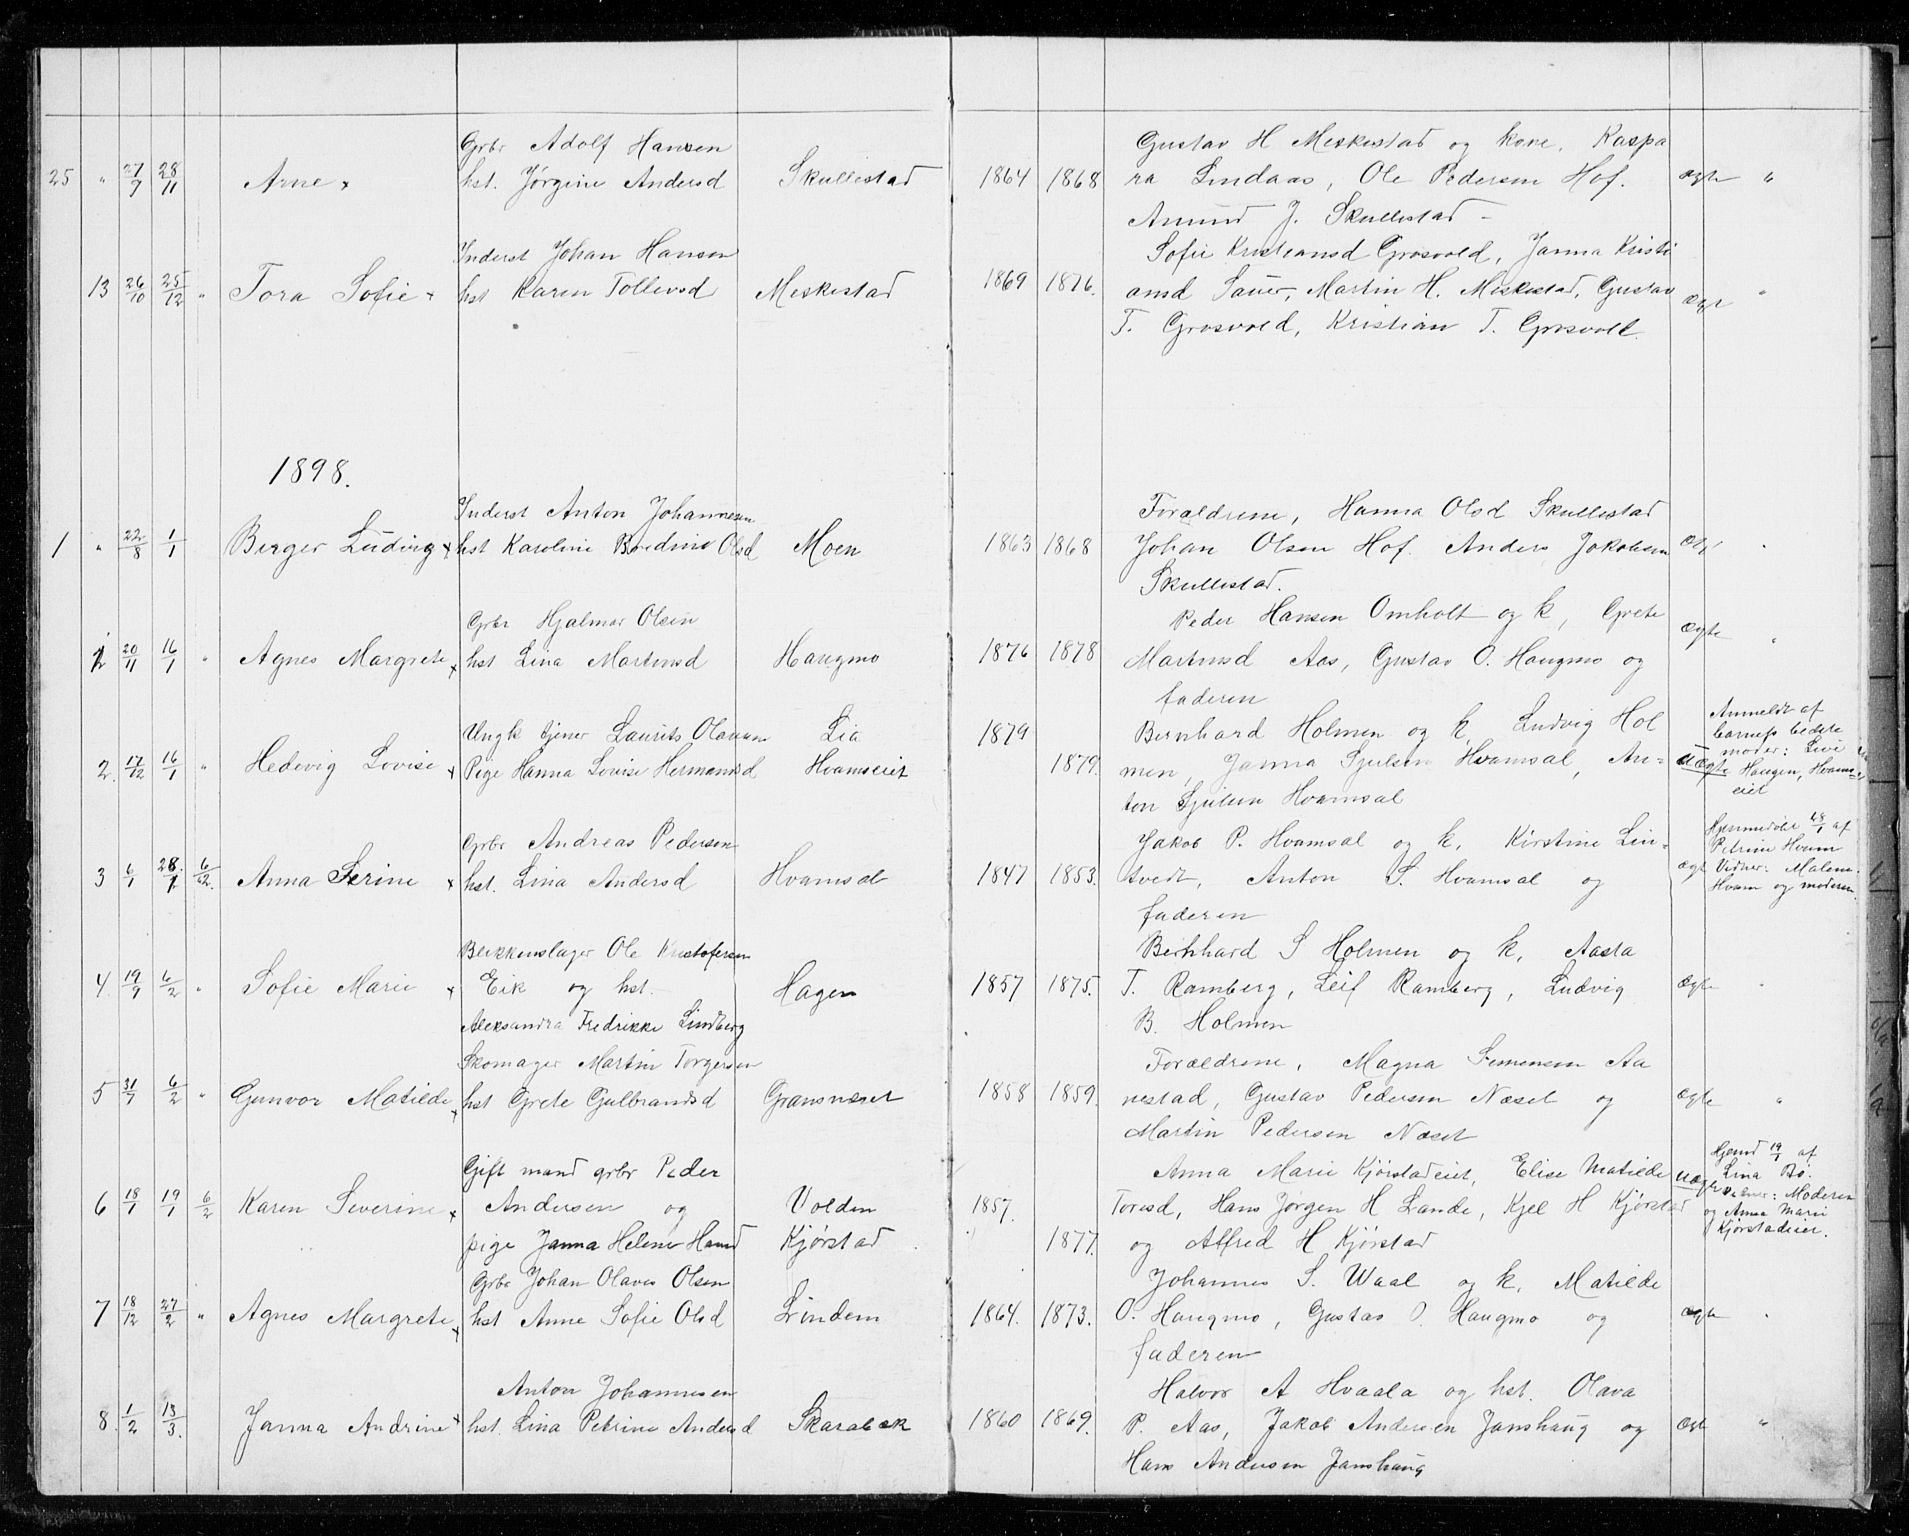 Grbr Adolf Hansen
25 " 27/9 28/11 Arne x hst. Jørgine Andersd Skullestad
Inderst Johan Hansen
13 26/10 25/12 " Tora Sofie x hst Karen Tollevsd Meskestad
1898.
Inderst Anton Johannesen
1 " 22/8 1/1 Birger Ludvig x hst Karoline Bredine Olsd Moen
Grbr Hjalmar Olsen
1 20/11 16/1 " Agnes Margrete x hst Lina Martinsd Haugmo
Ungk tjener Laurits Olausen Lia
2. 17/12 16/1 " Hedevig Lovise x Pige Hanna Lovise Hermansd Hvamseiet
Grbr Andreas Pedersen
3 6/1 28/1 6/2 Anna Serine x hst. Lina Andersd Hvamsal
Blikkenslager Ole Kristofersen
4. 19/9 6/2 " Sofie Marie x Eik og hst. Hagen
Aleksandra Fredrikke Lindberg
Skomager Martin Torgersen
5 31/7 6/2 " Gunvor Matilde x hst Grete Gulbrandsd Gransnæset
Gift mand grbr Peder
6 18/1 19/1 6/2 Karen Severine x Andersen og Volden
pige Janna Helene Hansd Kjørstad
Grbr Johan Olaves Olsen
7 18/12 27/2 " Agnes Margrete x hst Anne Sofie Olsd Lindem
Anton Johannesen
8. 1/2 13/3. Janna Andrine x hst. Lina Petrine Andersd Skarabæk
Gustav H Meskestad og kone, Kaspa
1864 1868 ra Lindaas, Ole Pedersen Hof. ægte "
Amund J. Skullestad -
Sofie Kristiansd Grosvold, Janna Kristi
1869 1876. ansd Sauer, Martin H. Meskestad, Gustav ægt "
T. Grosvold, Kristian T. Grosvold
Forældrene, Hanna Olsd Skullestad
1863 1868 Johan Olsen Hof. Anders Jakobsen ægt "
Skullestad.
Peder Hansen Omholt og k, Grete
1876 1878 Martinsd Aas, Gustav O. Haugmo og ægte "
faderen
1879 Bernhard Holmen og k, Ludvig Hol
1879. men, Janna Sjulsen Hvamsal, An= uægte
ton Sjulsen Hvamsal
Anmeldt af
barnets bedste
moder: Sivi
Haugen, Hvams=
eiet
Jakob P. Hvamsal og k, Kirstine Lin=
1847 1853. tvedt, Anton S. Hvamsal og ægt
faderen
Hjemmedøbt 28/1 af
Petrine Hvam
Vidner: Malene
Hvam og moderen.
Bernhard S Holmen og k, Aasta
1857 1875. T. Ramberg, Leif Ramberg, Ludvig ægte "
B. Holmen
Forældrene, Magna Simensen Aa
1858 1859. nestad, Gustav Pedersen Næset og ægte "
Martin Pedersen Næset
Anna Marie Kjørstadeiet, Elise Matilde uægte
1857. Toresd, Hans Jørgen H Lande, Kjel H Kjørstad
1877. og Alfred H Kjørstad
Hjemd 19/1 af
Lina Bø.
Vidner: Moderen
og Anna Marie
Kjørstadeiet.
Johannes S. Waal og k, Matilde
1864. 1873. O. Haugmo, Gustav O. Haugmo og ægte "
faderen
Halvor A Hvaala og hst. Olava
1860 1869. P. Aas, Jakob Andersen Janshaug og ægt "
Hans Andersen Janshaug